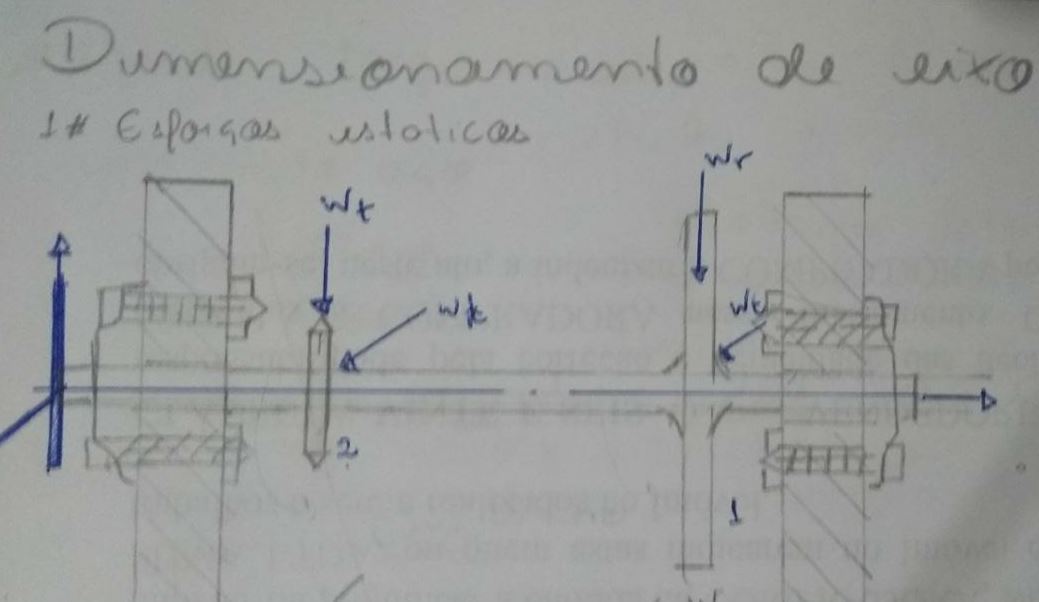 Dimensionamento de eixo
1# Esforços estaticos
Wr
Wt
Wt
Wt
2
1